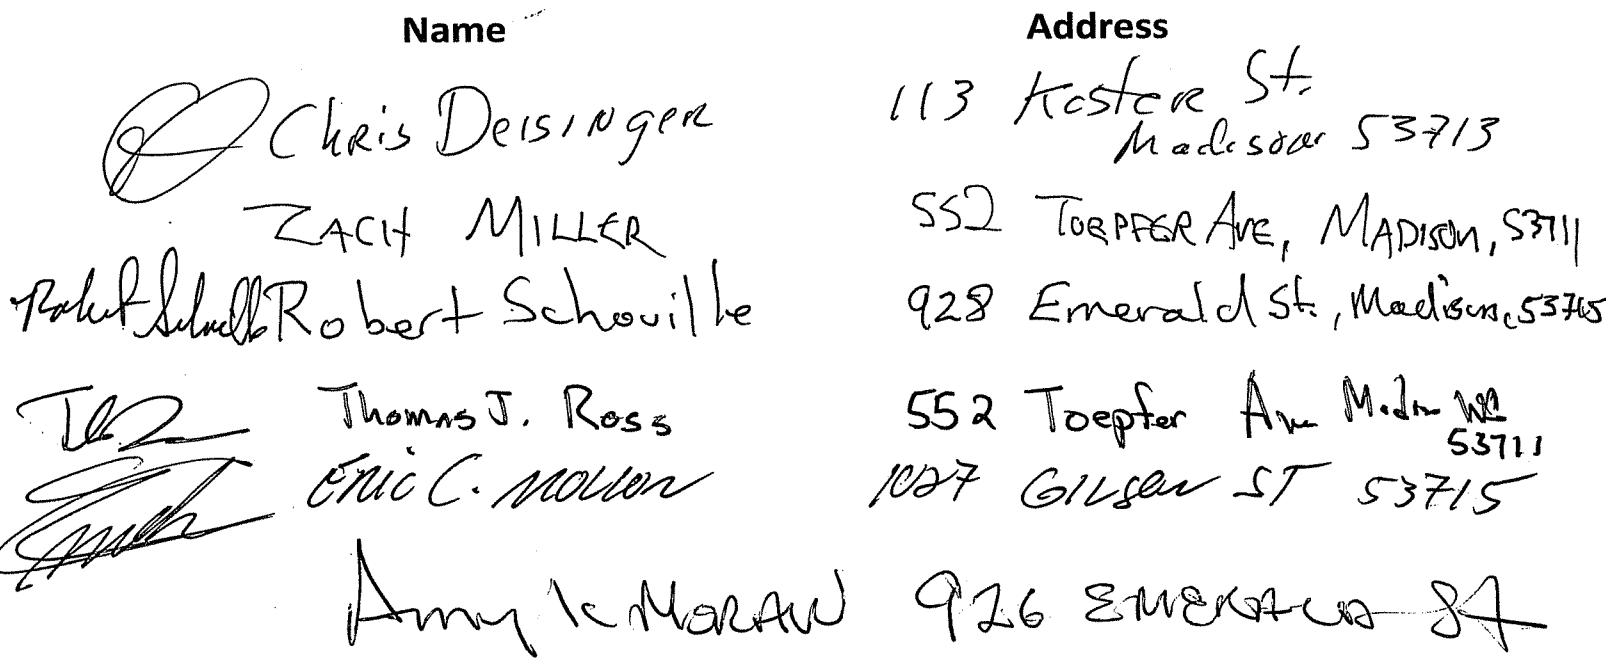 Name Address
Chris Deisinger 113 Koster St.
Madison 53713
ZACH MILLER 552 TOEPFER AVE, MADISON, 53711
Robert Schouille Robert Schouille 928 Emerald St., Madison, 53715
Thomas J. Ross 552 Toepfer Ave Madison WI
53711
Eric C. 1027 GILSON ST 53715
Amy K MORAN 926 EMERALD St